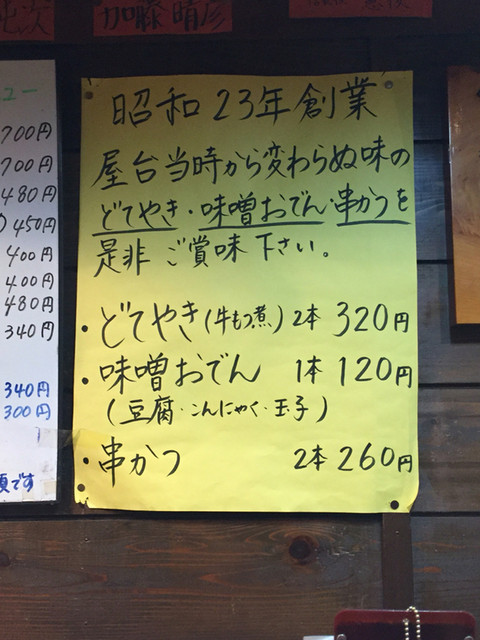 加藤晴彦
昭和23年創業
屋台当時から変わらぬ味の
どてやき・味噌おでん・串かつを
是非ご賞味下さい。
・どてやき(牛もつ煮)2本 320円
・味噌おでん 1本 120円
(豆腐・こんにゃく・玉子)
・串かつ 2本 260円
ュー
700円
700円
480円
450円
400円
400円
480円
340円
340円
300円
です